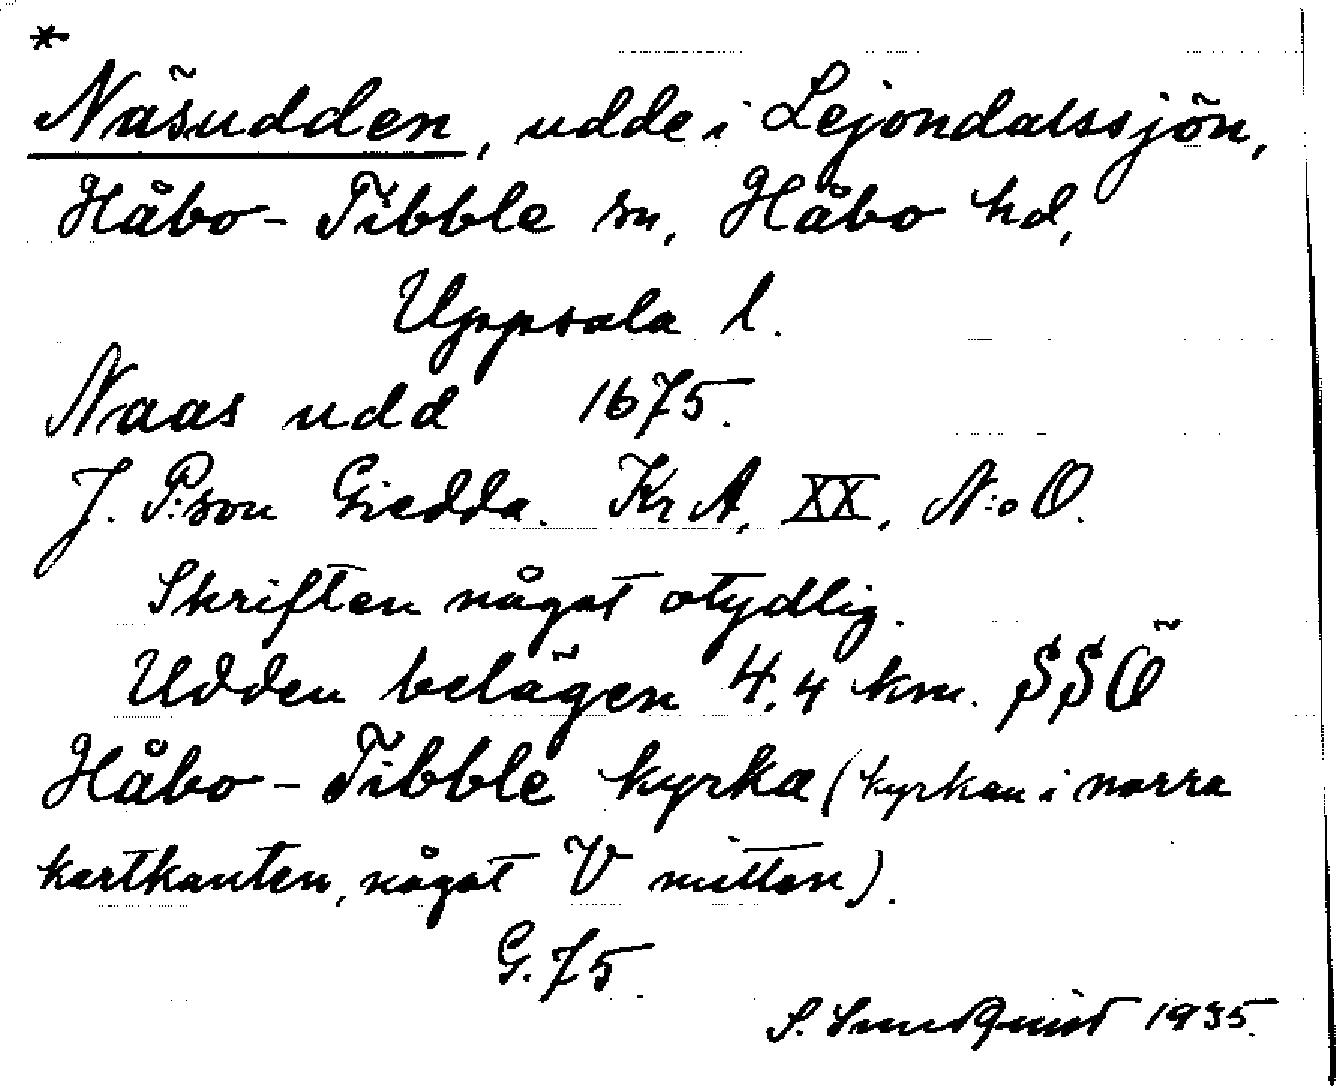 *
Näsudden, udde i Lejondalssjön,
Håbo-Tibble sn, Håbo hd,
Uppsala l.
Naas udd 1675.
J. P:son Giedda. Kr A, XX, N:o O.
Skriften något otydlig.
Udden belägen 4,4 km. SSÖ
Håbo-Tibble kyrka (kyrkan i norra
kartkanten, något V mitten).
G. 75
S. Sundquist 1935.